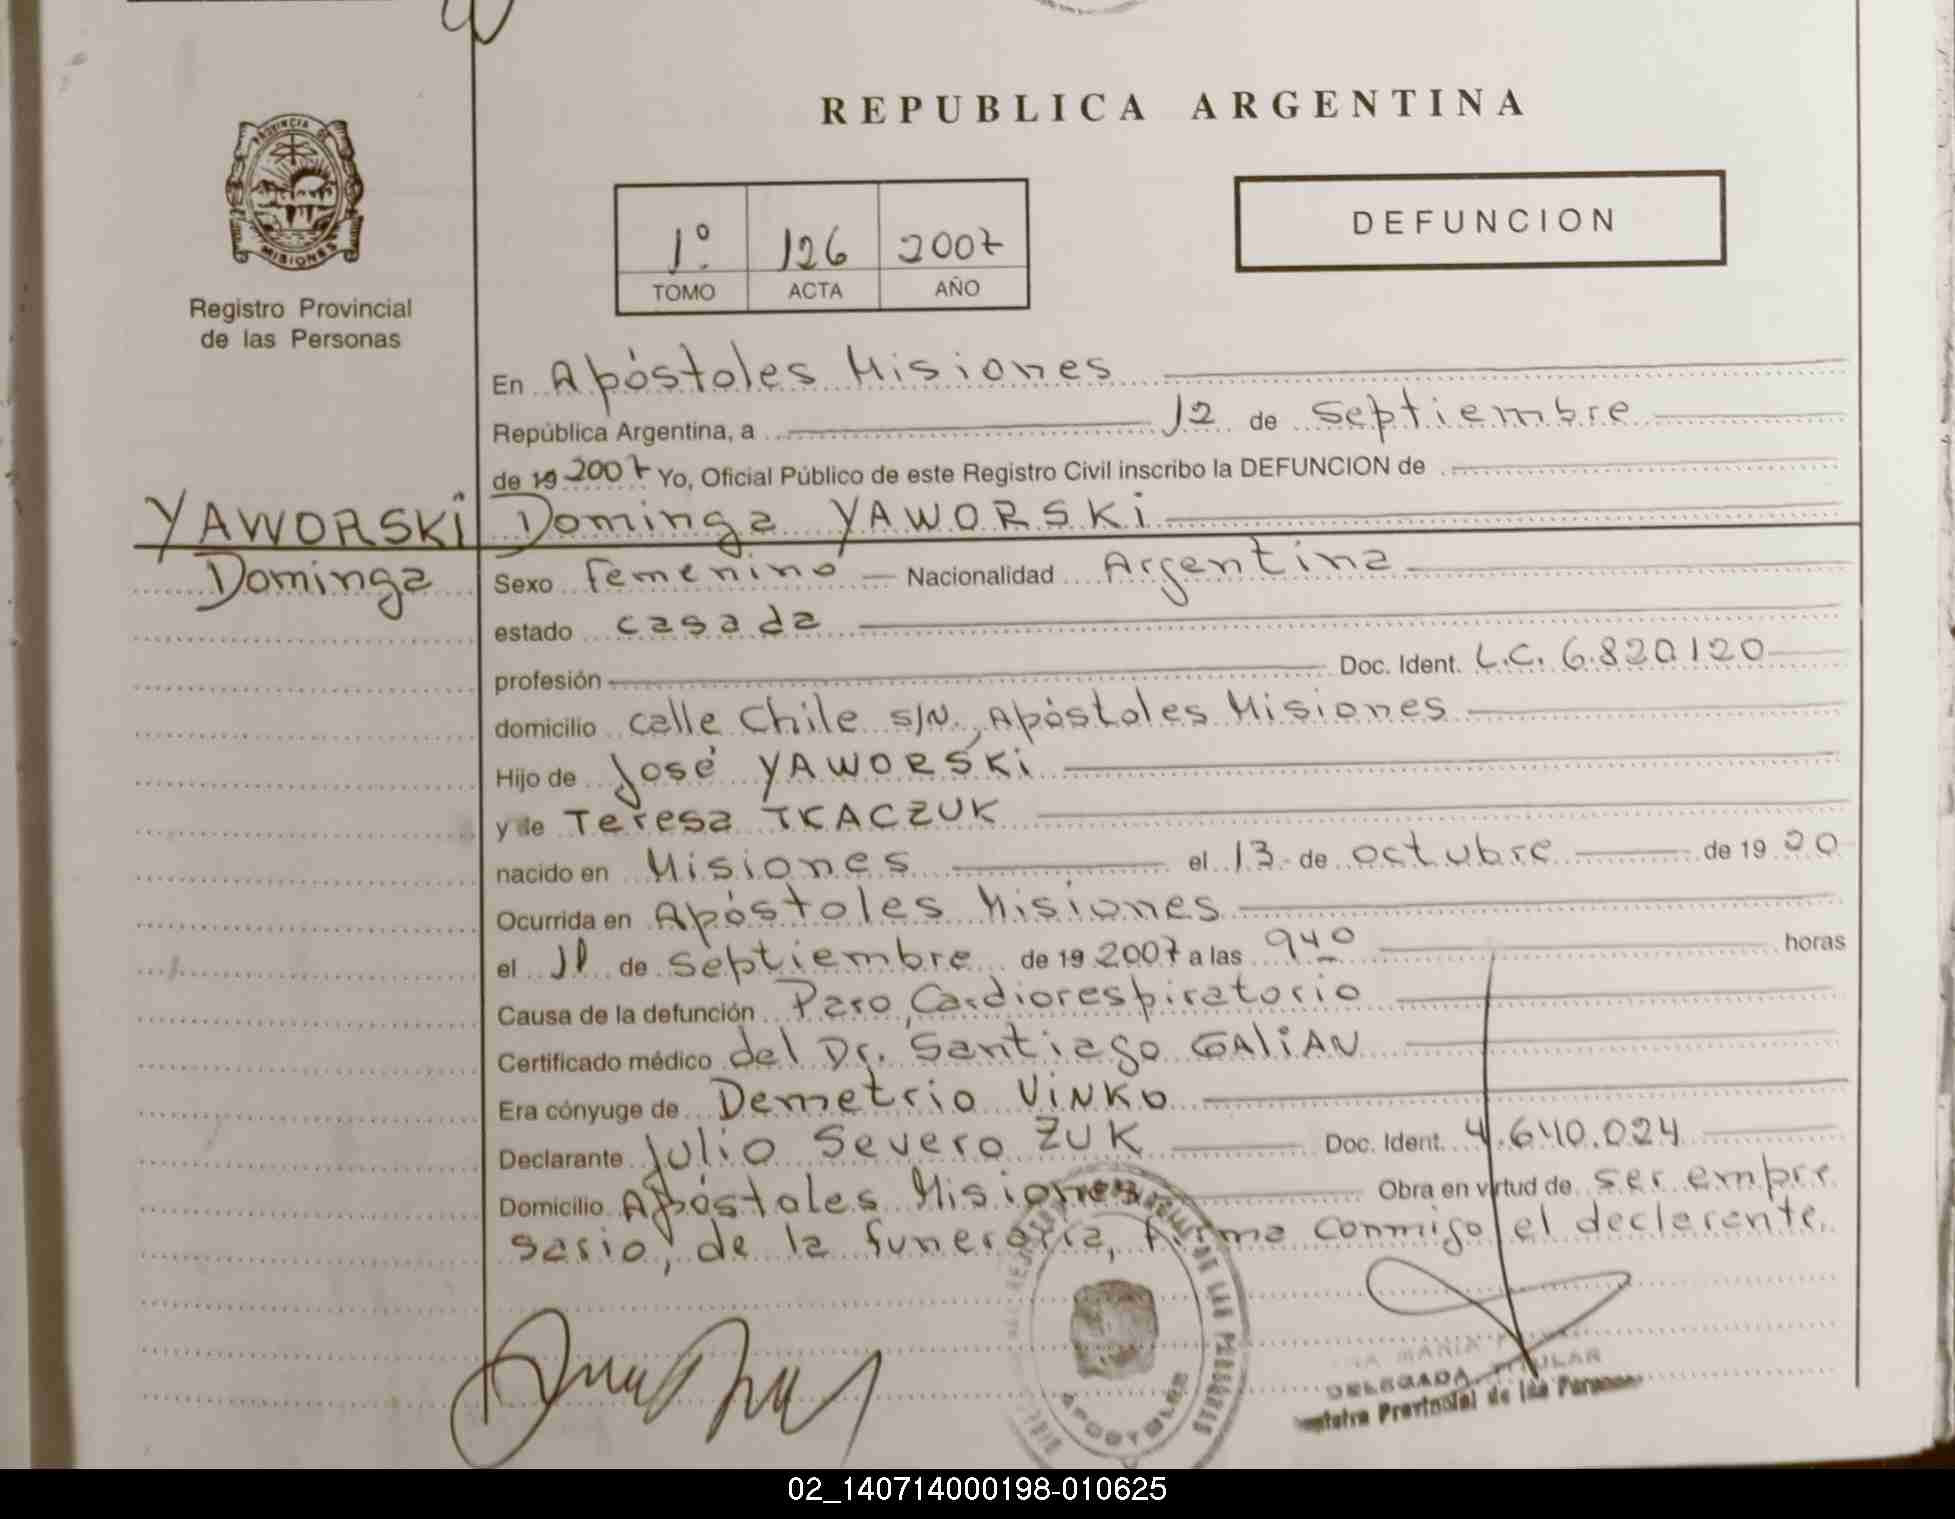 PROVINCIA DE
MISIONES
Registro Provincial
de las Personas
REPUBLICA ARGENTINA
1º 126 2007
TOMO ACTA AÑO
DEFUNCION
En Apóstoles Misiones
República Argentina, a 12 de septiembre
de 19 2007 Yo, Oficial Público de este Registro Civil inscribo la DEFUNCION de
YAWORSKI Dominga YAWORSKI
Dominga Sexo femenino Nacionalidad Argentina
estado casada
profesión Doc. Ident. L.C. 6.820120
domicilio calle Chile s/N., Apóstoles Misiones
Hijo de José YAWORSKI
y de Teresa TKACZUK
nacido en Misiones el 13 de octubre de 19 20
Ocurrida en Apóstoles Misiones
el 11 de septiembre de 19 2007 a las 940 horas
Causa de la defunción Paro Cardiorespiratorio
Certificado médico del Dr. Santiago GALIAN
Era cónyuge de Demetrio VINKO
Declarante Julio Severo ZUK Doc. Ident. 4.640.024
Domicilio Apóstoles Misiones Obra en virtud de ser empre
sario, de la funeraria, firma conmigo el declarante.
APOSTOLES
MARIA
DELEGADA TITULAR
Provincial de las Personas
02_140714000198-010625